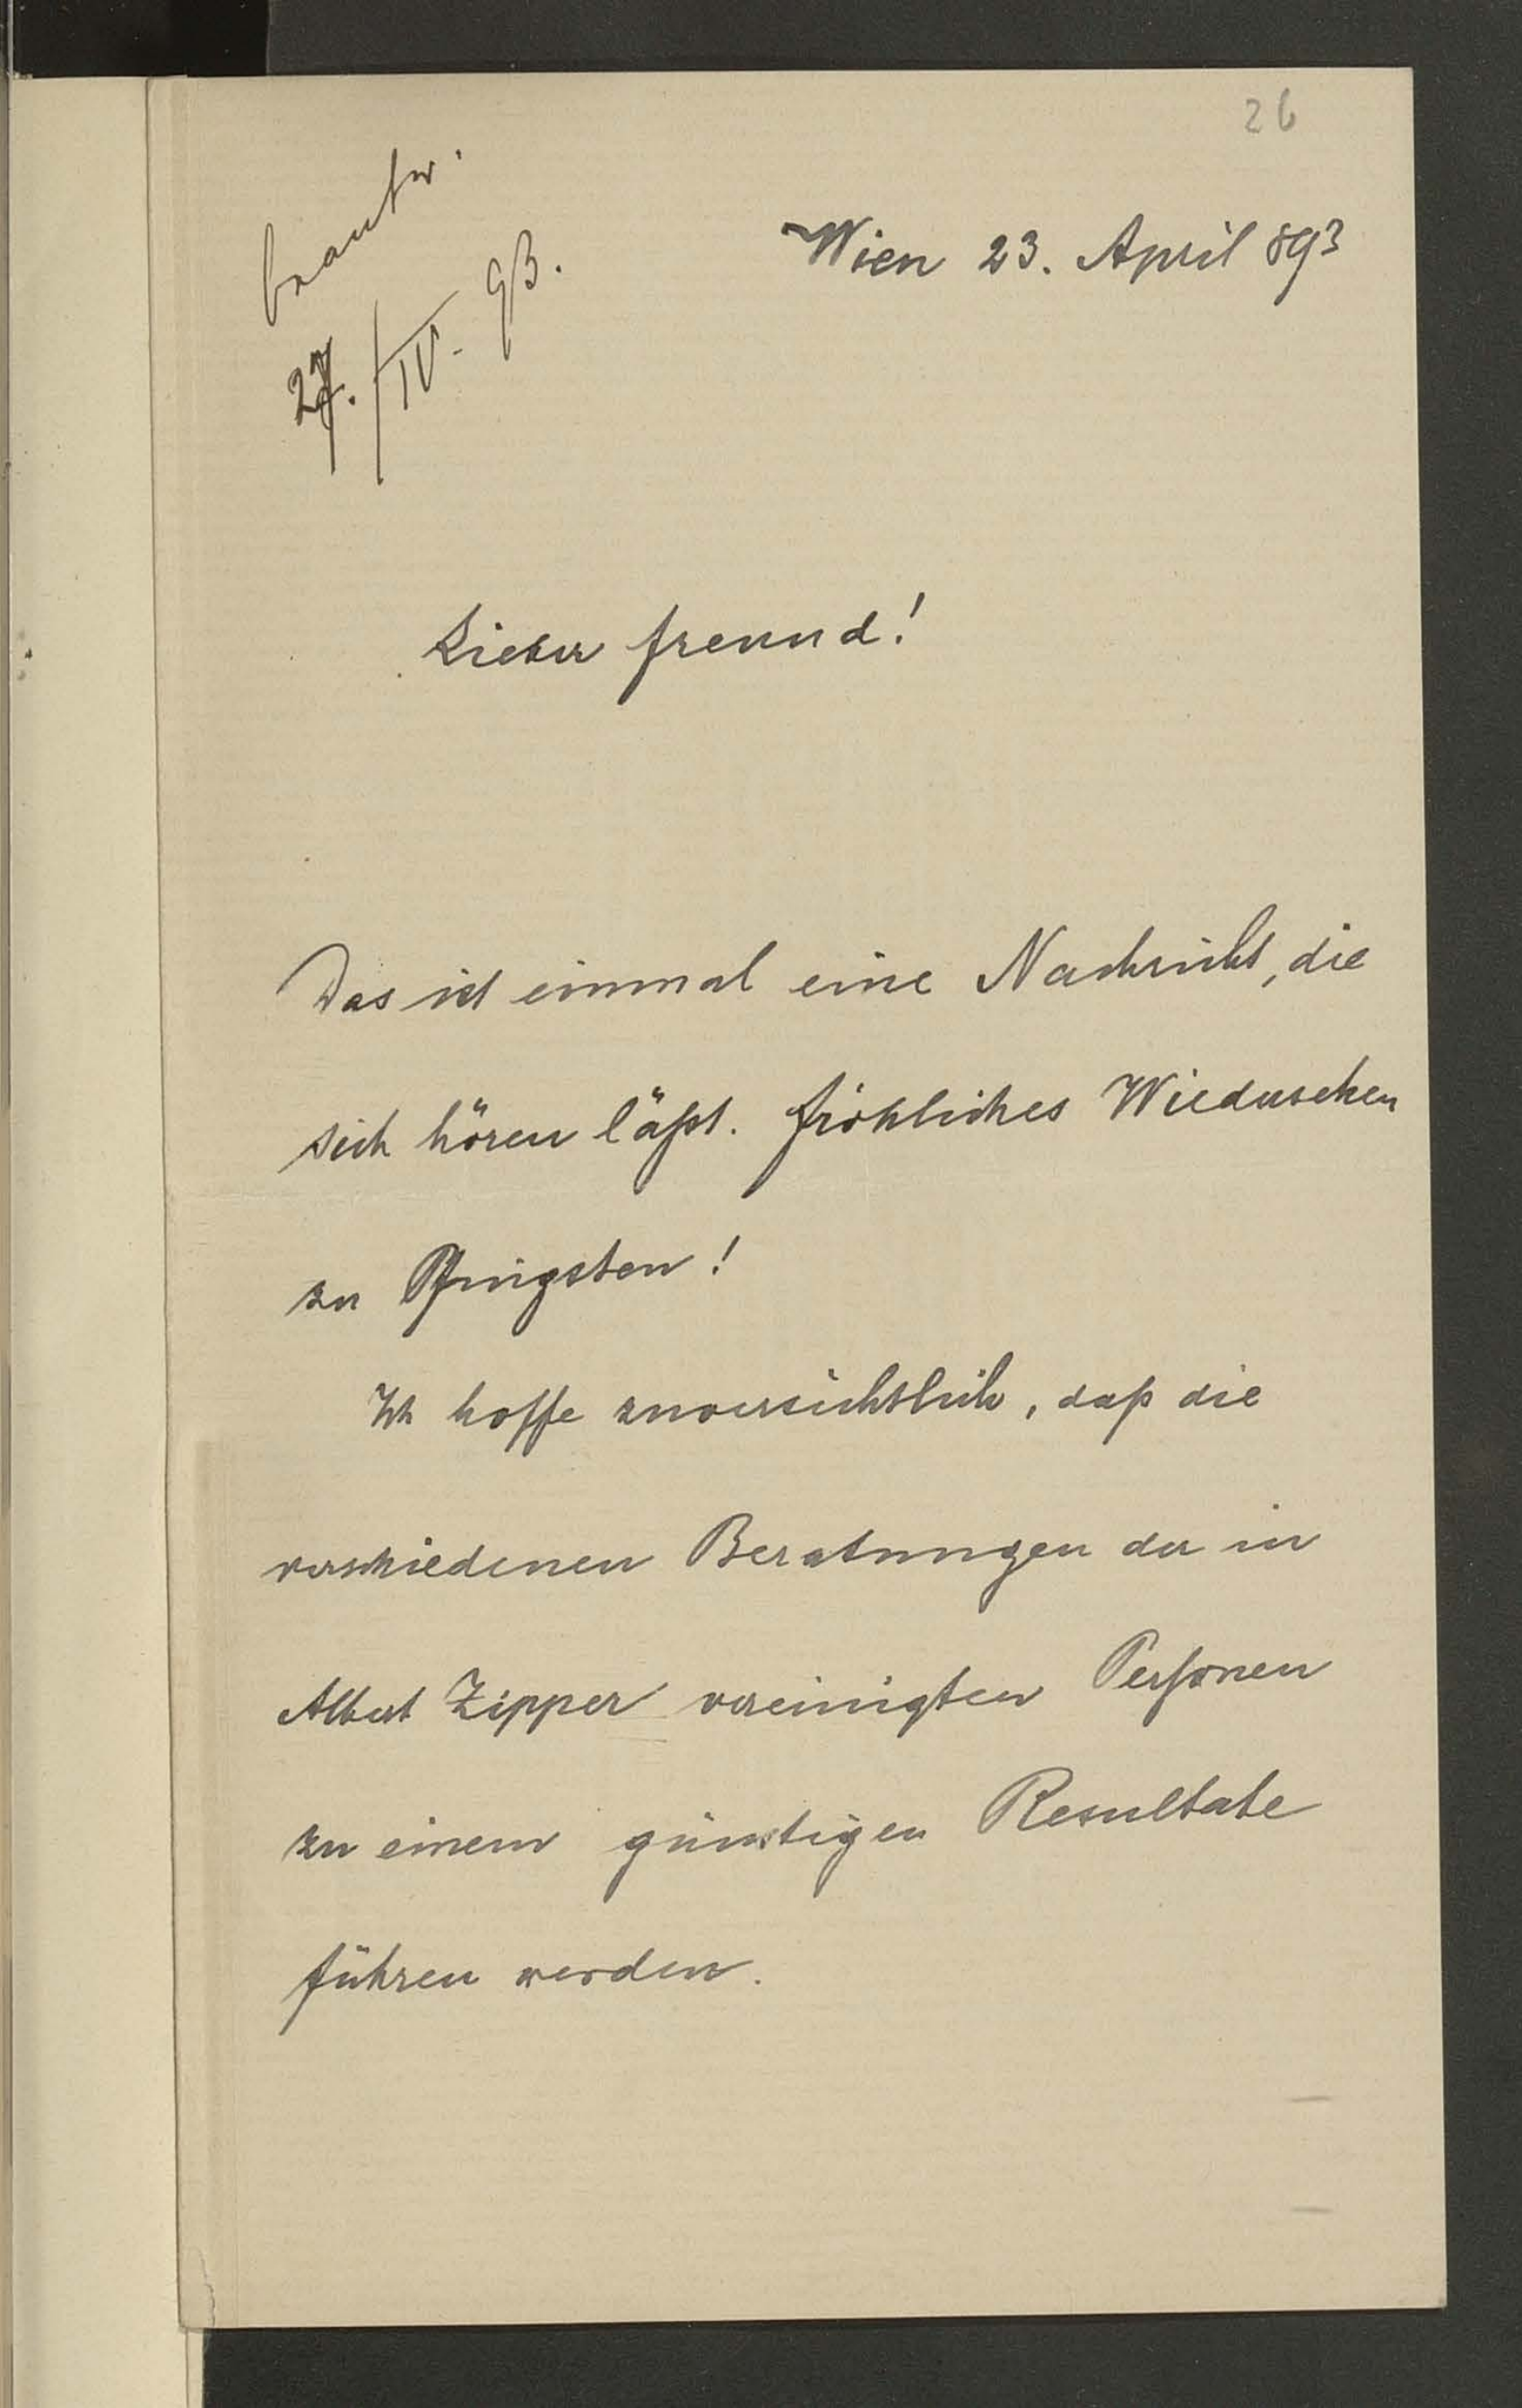 26
beantw.
27./IV. 93.
Wien 23. April 893
Lieber Freund!
Das ist einmal eine Nachricht, die
sich hören läßt. Fröhliches Wiedersehen
zu Pfingsten!
Ich hoffe zuversichtlich, daß die
verschiedenen Beratungen der in
Albert Zipper vereinigten Personen
zu einem günstigen Resultate
führen werden.